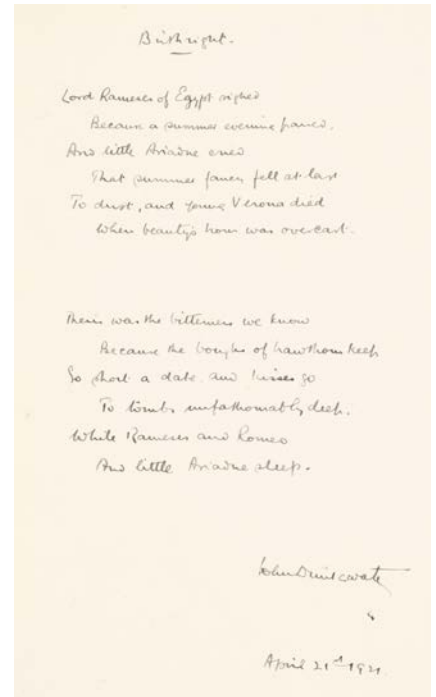 Birthright.
Lord Rameses of Egypt sighed
Because a summer evening passed,
And little Ariadne cried
That summer fancy fell at last
To dust, and young Verona died
When beauty's hour was overcast.
Theirs was the bitterness we know
Because the boughs of hawthorn keep
So short a date, and kisses go
To tombs unfathomably deep.
While Rameses and Romeo
And little Ariadne sleep.
John Drinkwater
April 21st 1921